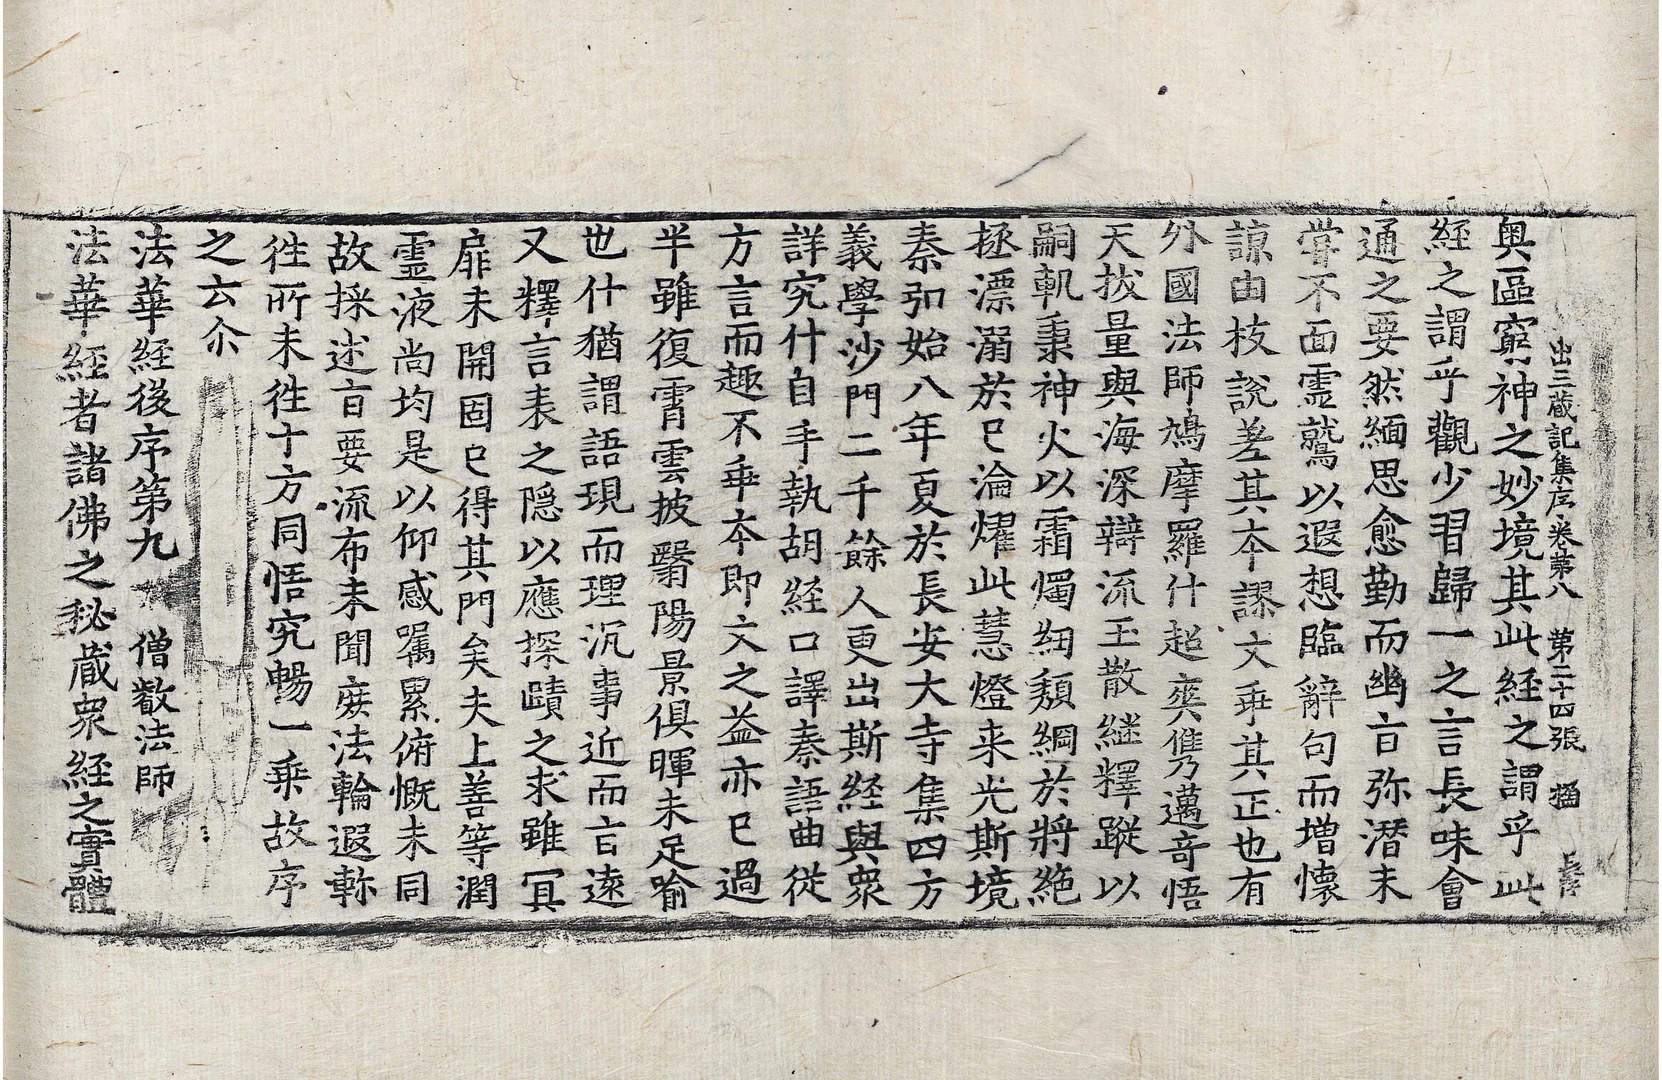 出三蔵記集序卷第八 第二十四張 㮶
奥區窮神之妙境其此経之謂乎此
経之謂乎觀少習歸一之言長味會
通之要然緬思愈勤而幽旨弥潛未
甞不面霊鷲以遐想臨辭句而増懐
諒由枝說差其夲謬文乖其正也有
外國法師鳩摩羅什超奕儁乃邁竒悟
天拔量與海深辯流玉散継釋蹤以
嗣軌秉神火以霜燭紉頽綱於將絶
拯漂溺於已淪燿此慧燈来光斯境
秦弘始八年夏於長安大寺集四方
義學沙門二千餘人更出斯経與衆
詳究什自手執胡経口譯秦語曲從
方言而趣不乖夲即文之益亦已過
半雖復霄雲披翳陽景俱暉未足喻
也什猶謂語現而理沉事近而言遠
又釋言表之隠以應探賾之求雖冥
扉未開固已得其門矣夫上善等潤
霊液尚均是以仰感嘱累俯慨未同
故採述旨要流布未聞庻法輪遐軫
徃所未徃十方同悟究暢一乗故序
之云尒
法華経後序第九 僧叡法師
法華経者諸佛之秘蔵衆経之實體